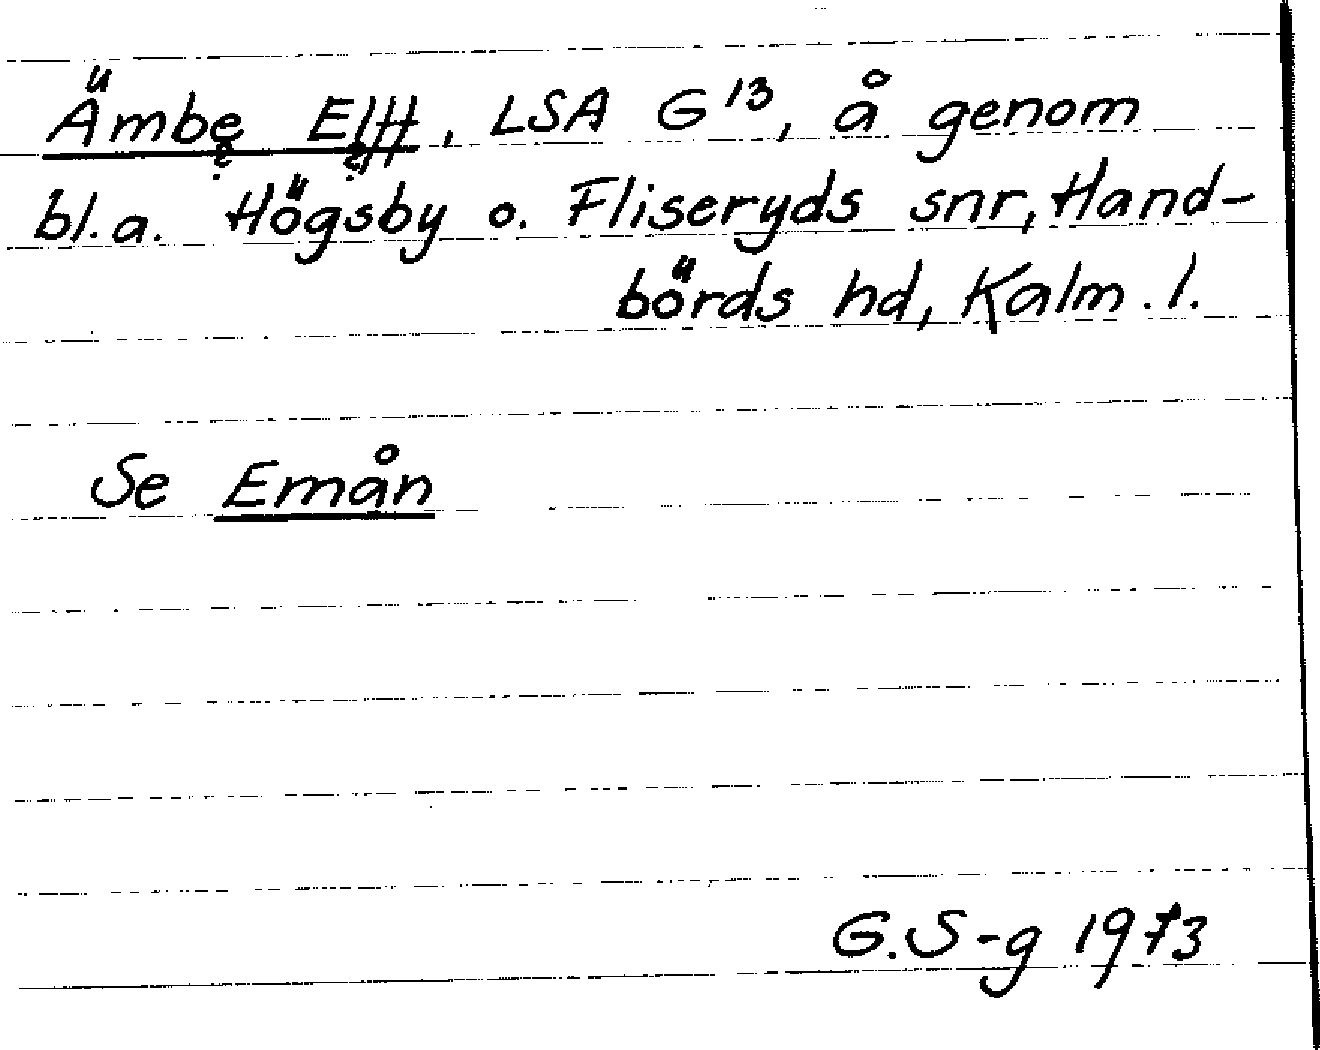 Ämbe Elff, LSA G¹³, å genom
bl.a. Högsby o. Fliseryds snr, Hand-
börds hd, Kalm. l.
Se Emån
G.S-g 1973